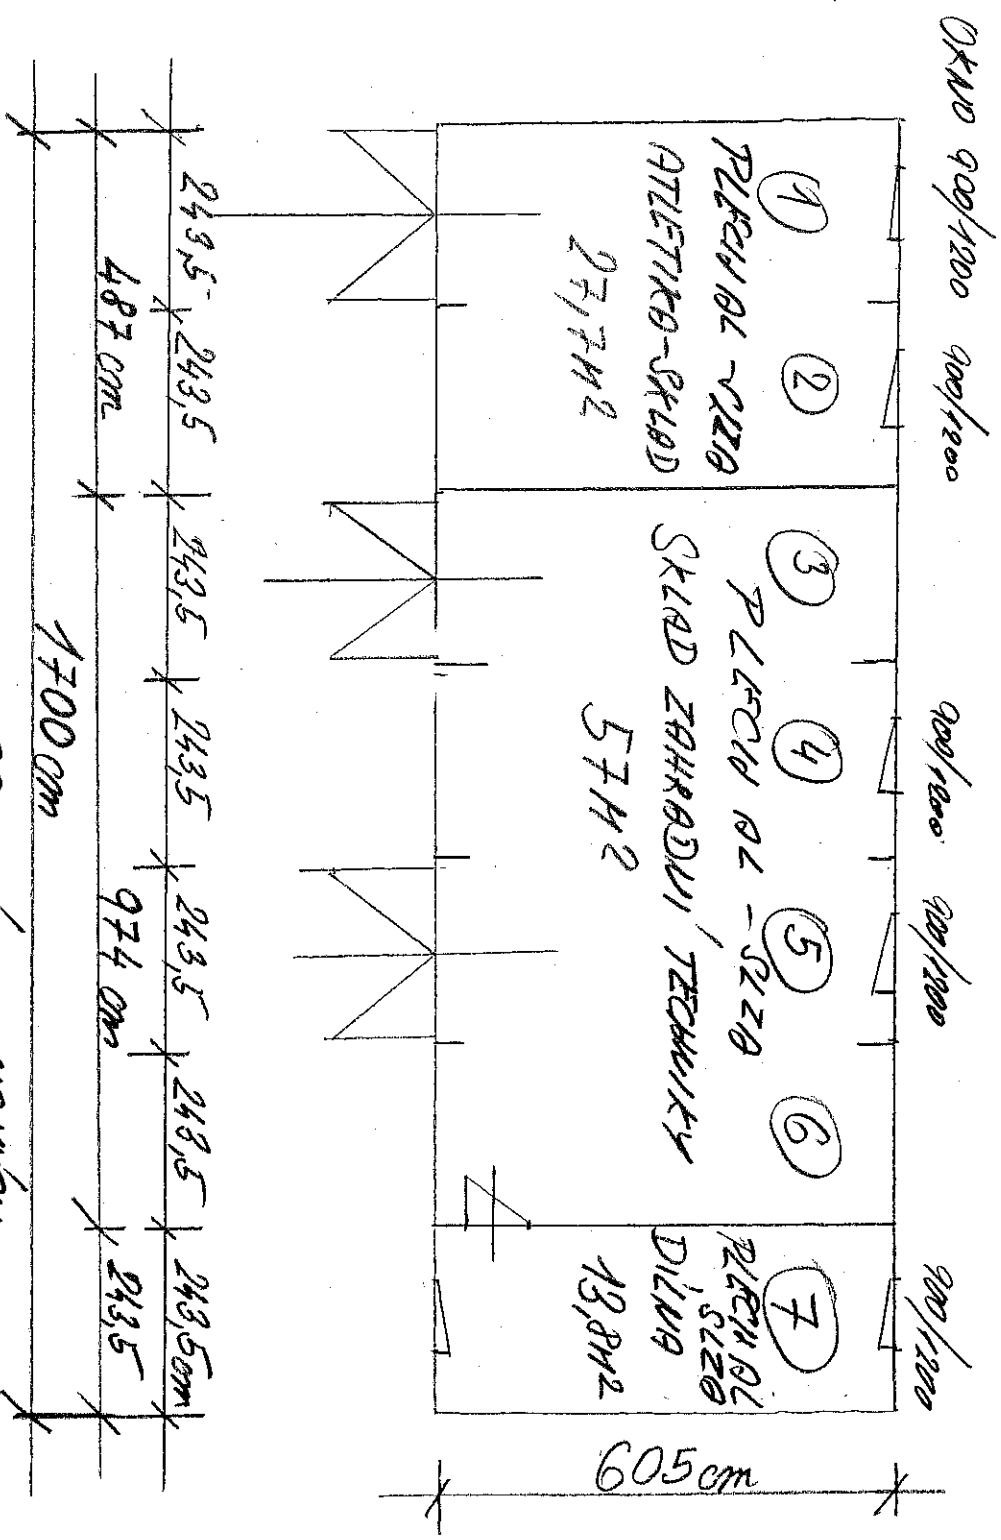 OKNO 900/1200 900/1200 900/1200 900/1200 900/1200
1 2
PLECH AL - SLZA
ATLETIKA-SKLAD
27,7M2
3 4 5 6
PLECH AL - SLZA
SKLAD ZAHRADNÍ TECHNIKY
57M2
7
PLECH AL
SLZA
DÍLNA
13,8M2
605cm
243,5 243,5 243,5 243,5 243,5 243,5 243,5cm
487cm 974cm 243,5
1700cm